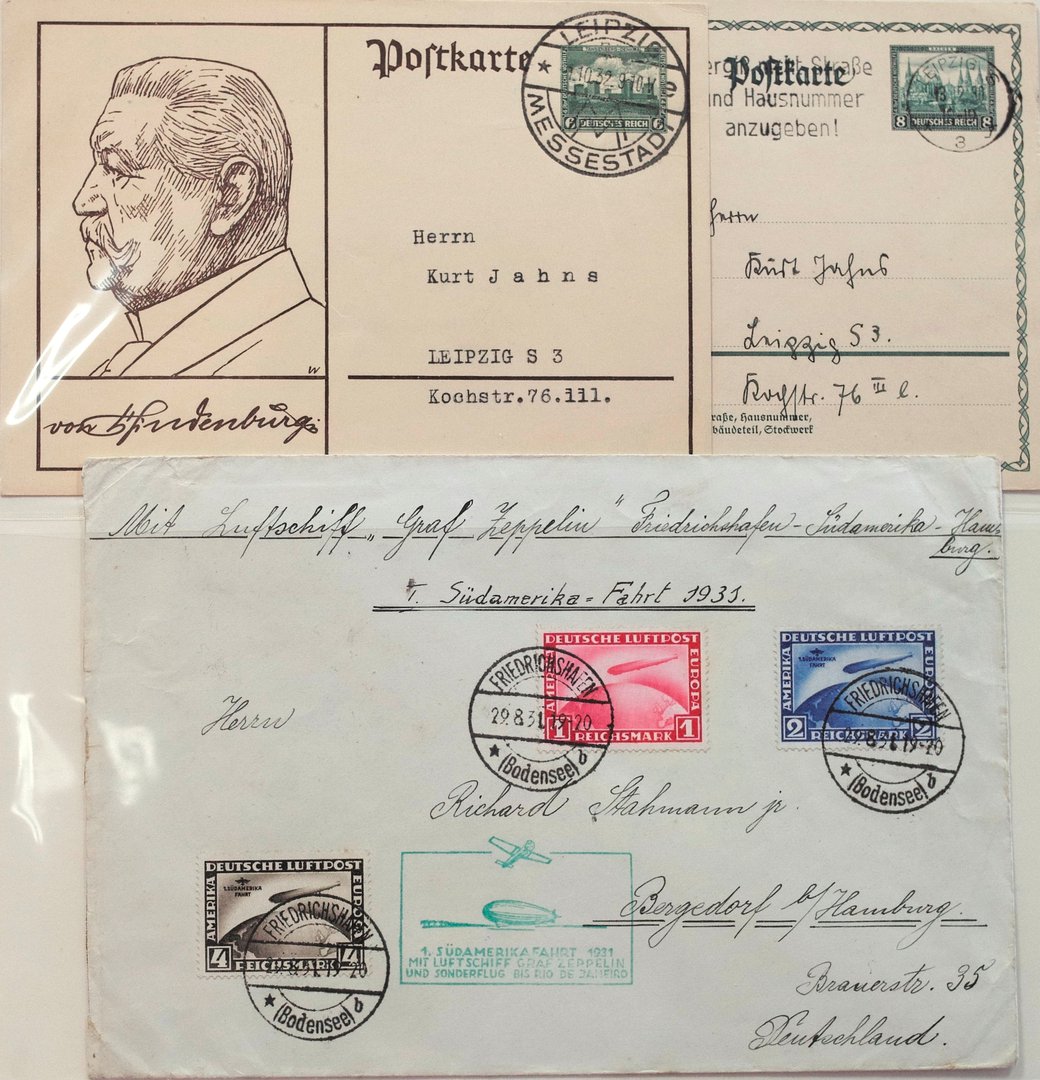 Postkarte
LEIPZIG S
MESSESTADT
DEUTSCHES REICH
6 6
Herrn
Kurt Jahns
LEIPZIG S 3
Kochstr.76.iii.
von Hindenburg
W
Postkarte
Straße
und Hausnummer
anzugeben!
LEIPZIG
3
DEUTSCHES REICH
8 8
Herrn
Kurt Jahns
Leipzig S 3.
Kochstr. 76 III l.
raße, Hausnummer,
bäudeteil, Stockwerk
Mit Luftschiff „Graf Zeppelin" Friedrichshafen - Südamerika - Ham-
burg.
I. Südamerika=Fahrt 1931.
DEUTSCHE LUFTPOST
AMERIKA
EUROPA
1 REICHSMARK 1
FRIEDRICHSHAFEN
29.8.31.19-20
(Bodensee) b
DEUTSCHE LUFTPOST
AMERIKA
EUROPA
1. SÜDAMERIKA
FAHRT
2 REICHSMARK 2
FRIEDRICHSHAFEN
29.8.31.19-20
(Bodensee) b
Herrn
Richard Stahmann jr.
DEUTSCHE LUFTPOST
AMERIKA
EUROPA
1. SÜDAMERIKA
FAHRT
4 REICHSMARK 4
FRIEDRICHSHAFEN
29.8.31.19-20
(Bodensee) b
1. SÜDAMERIKAFAHRT 1931
MIT LUFTSCHIFF GRAF ZEPPELIN
UND SONDERFLUG BIS RIO DE JANEIRO
Bergedorf b/Hamburg.
Brauerstr. 35
Deutschland.